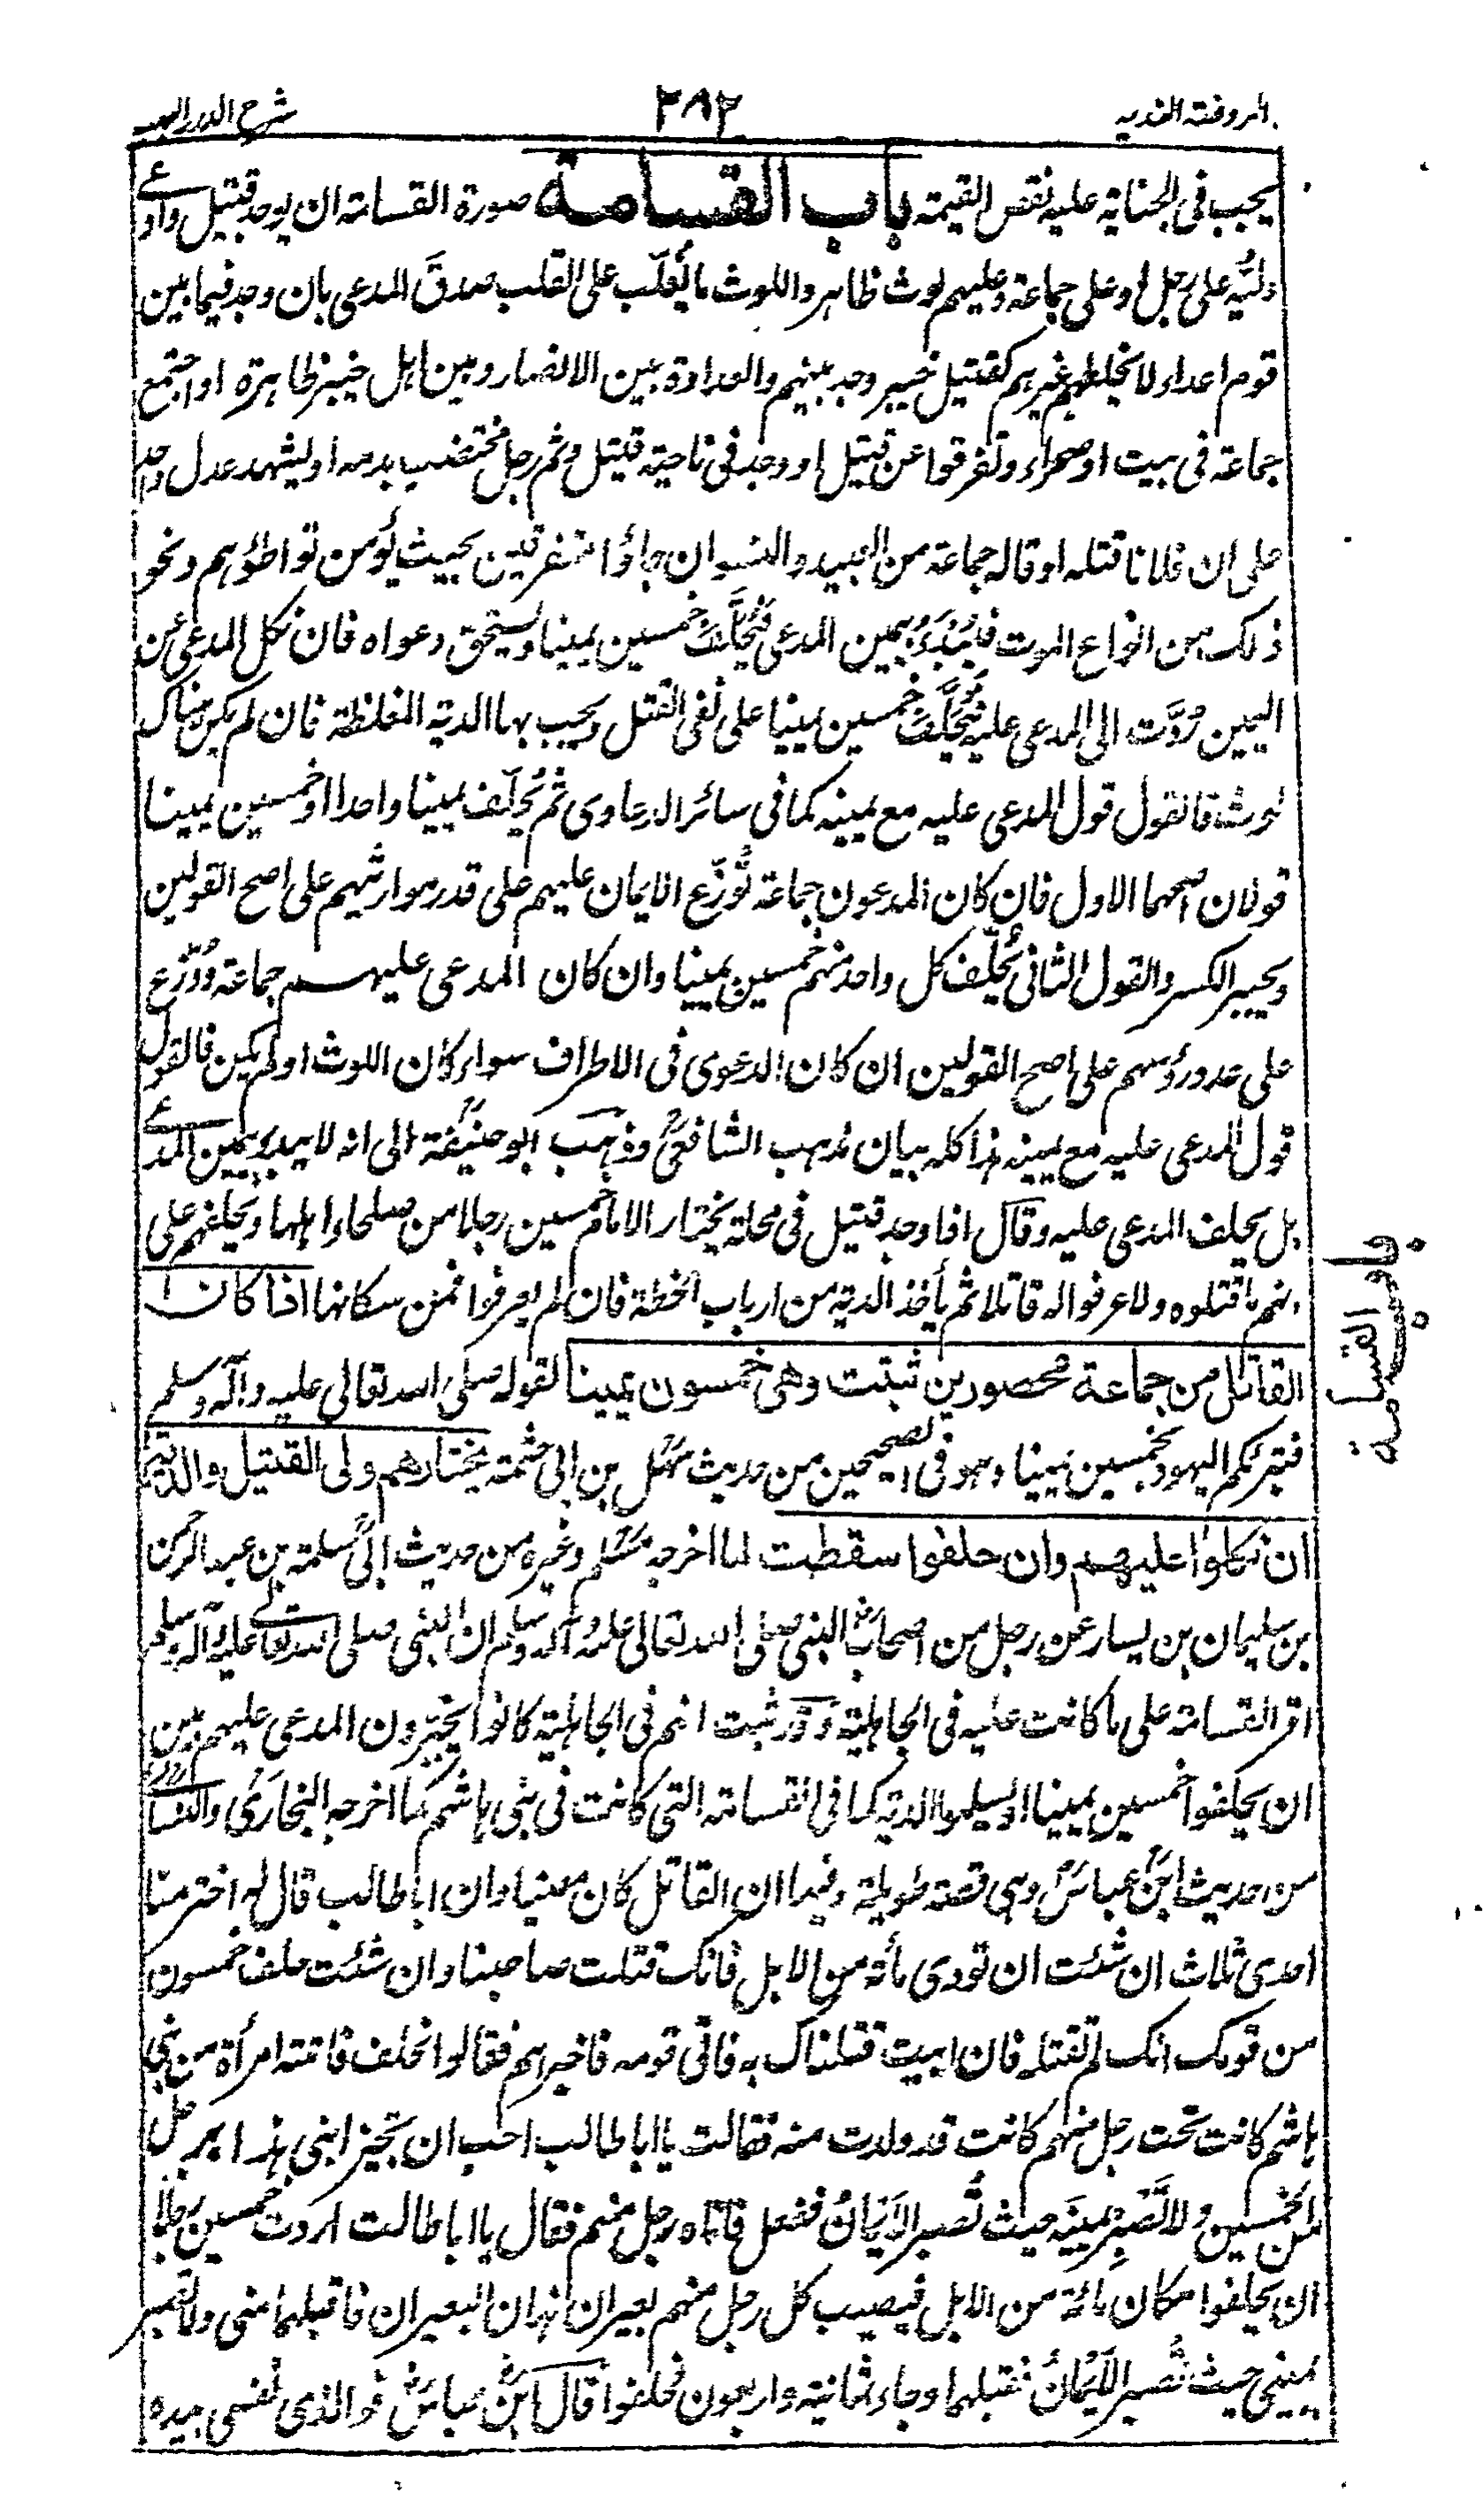 الروضة الندية ٢٨٢ شرح الدرر البهية
يجب فى الجناية عليه نقص القيمة باب القسامة صورة القسامة ان يوجد قتيل وادعى
وليُّه على رجل او على جماعة وعليهم لوث ظاهر واللوث ما يُغلّب على القلب صدقَ المدعى بان وجد فيما بين
قوم اعداء لا يخلطهم غيرهم كقتيل خيبر وجد بينهم والعداوة بين الانصار وبين اهل خيبر ظاهرة او اجتمع
جماعة فى بيت او صحراء وتفرقوا عن قتيل او وجد فى ناحية قتيل وثم رجل مختضب بدمه او يشهد عدل واحد
على ان فلانا قتله او قاله جماعة من العبيد والنسوان جاؤا متفرقين بحيث يُؤمن تواطؤهم ونحو
ذلك من انواع الموت فيُبْدَءُ بيمين المدعى فيُحَلَّفُ خمسين يمينا ويستحق دعواه فان نكل المدعى عن
اليمين رُدَّت الى المدعى عليه فيُحَلَّفُ خمسين يمينا على نفى القتل ويجب بها الدية المغلظة فان لم يكن هناك
لوث فالقول قول المدعى عليه مع يمينه كما فى سائر الدعاوى ثم يُحلّف يمينا واحدا او خمسين يمينا
قولان اصحهما الاول فان كان المدعون جماعة تُوزّع الايمان عليهم على قدر مواريثهم على اصح القولين
ويجبر الكسر والقول الثانى يُحلّف كل واحد منهم خمسين يمينا وان كان المدعى عليهم جماعة وُزّع
على عدد رؤسهم على اصح القولين ان كان الدعوى فى الاطراف سواء كان اللوث او لم يكن فالقول
قول المدعى عليه مع يمينه هذا كله بيان مذهب الشافعىؒ وذهب ابو حنيفةؒ الى انه لا يبدء بيمين المدعى
بل يحلف المدعى عليه وقال اذا وجد قتيل فى محلة يختار الامام خمسين رجلا من صلحاء اهلها ويحلفهم على
انهم ما قتلوه ولا عرفوا له قاتلا ثم يأخذ الدية من ارباب الخطة فان لم يعرفوا فمن سكانها اذا كان
القاتل من جماعة محصورين ثبتت وهى خمسون يمينا لقوله صلى الله تعالى عليه وآله وسلم
فتبرئكم اليهود بخمسين يمينا وهو فى الصحيحين من حديث سهل بن ابى حثمة يختارهم ولى القتيل والدية
ان نكلوا عليهم وان حلفوا سقطت لما اخرجه مسلم وغيره من حديث ابى سلمة بن عبد الرحمن
بن سليمان بن يسار عن رجل من اصحاب النبى صلى الله تعالى عليه وآله وسلم ان النبى صلى الله تعالى عليه وآله وسلم
اقر القسامة على ما كانت عليه فى الجاهلية وقد ثبت انهم فى الجاهلية كانوا يخيّرون المدعى عليهم بين
ان يحلفوا خمسين يمينا او يسلموا الدية كما فى القسامة التى كانت فى بنى هاشم كما اخرجه البخارى والنسائى
من حديث ابن عباس وهى قصة طويلة وفيها ان القاتل كان معينا وان ابا طالب قال له اختر منا
احدى ثلاث ان شئت ان تودى مائة من الابل فانك قتلت صاحبنا وان شئت حلف خمسون
من قومك انك لم تقتله فان ابيت قتلناك به فاتى قومه فاخبرهم فقالوا نحلف فاتته امرأة من بنى
هاشم كانت تحت رجل منهم كانت قد ولدت منه فقالت يا ابا طالب احب ان تجيز ابنى هذا برجل
من الخمسين ولا تَصْبِرْ يمينَه حيث تُصبر الاَيْمانُ ففعل فاتاه رجل منهم فقال يا ابا طالب اردت خمسين رجلا
ان يحلفوا مكان مائة من الابل فيصيب كل رجل منهم بعيران هذان البعيران فاقبلهما منى ولا تصبر
يمينى حيث تُصبر الاَيْمانُ فقبلهما وجاء ثمانية واربعون فحلفوا قال ابن عباس فو الذى نفسى بيده
باب القسامة